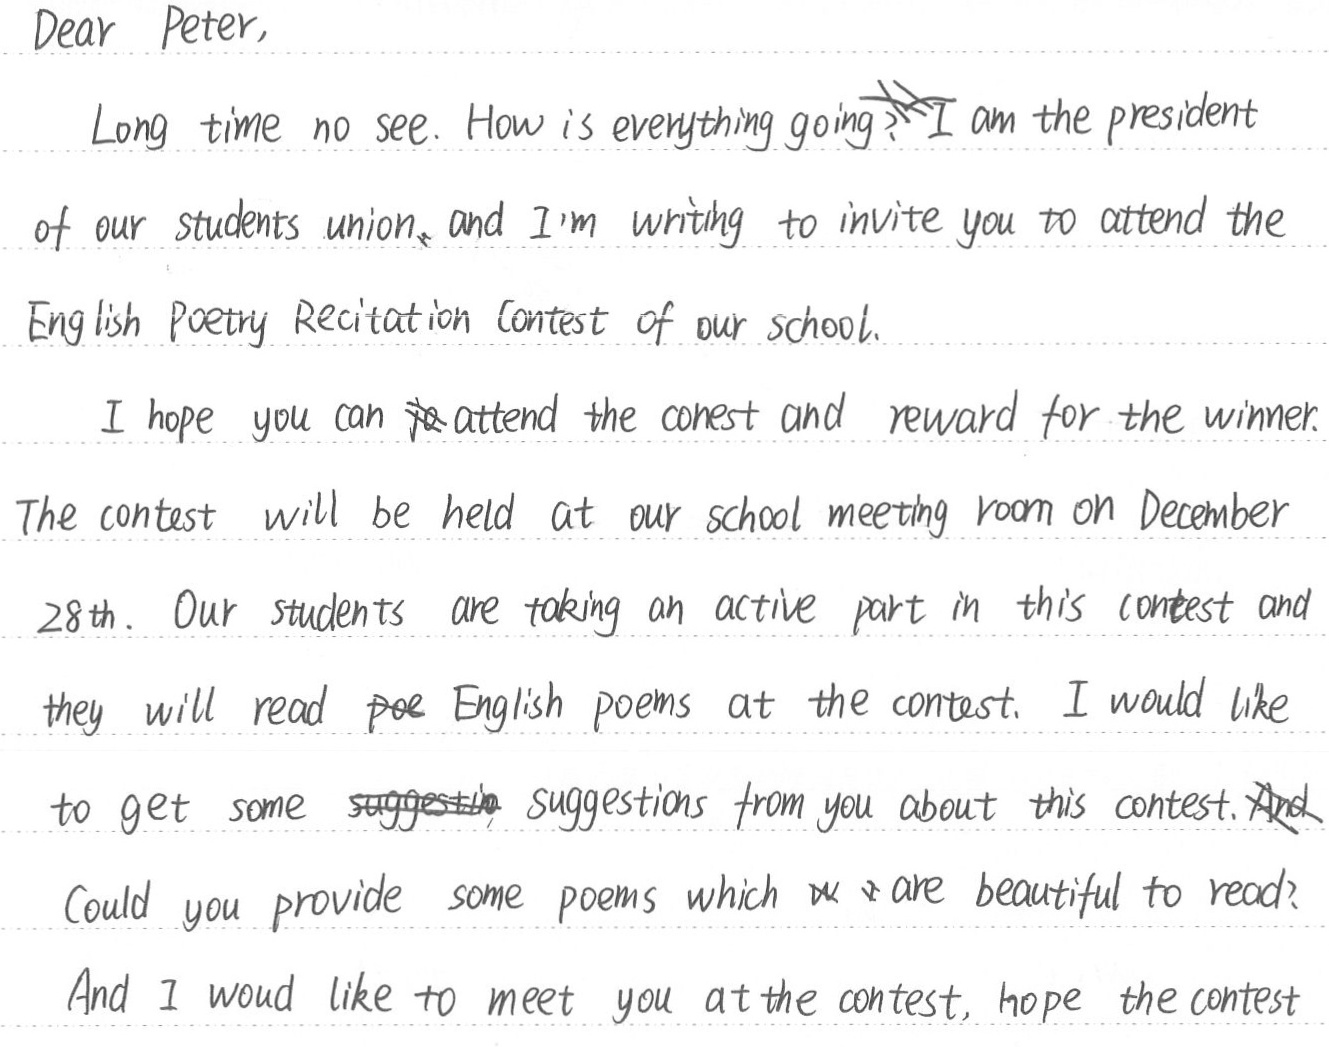 Dear Peter,
Long time no see. How is everything going? I am the president
of our students union, and I'm writing to invite you to attend the
English Poetry Recitation Contest of our school.
I hope you can attend the conest and reward for the winner.
The contest will be held at our school meeting room on December
28th. Our students are taking an active part in this contest and
they will read poe English poems at the contest. I would like
to get some suggestio suggestions from you about this contest. And
Could you provide some poems which are beautiful to read?
And I woud like to meet you at the contest, hope the contest